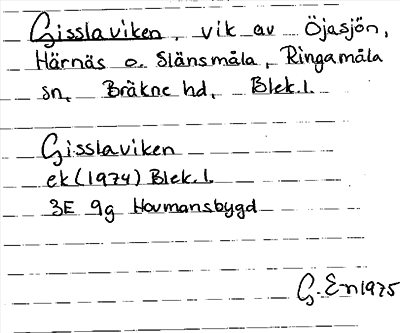 Gisslaviken, vik av Öjasjön,
Härnäs o. Slänsmåla, Ringamåla
sn, Bräkne hd, Blek.l.
Gisslaviken
ek (1974) Blek.l.
3E 9g Hovmansbygd
G. En 1975